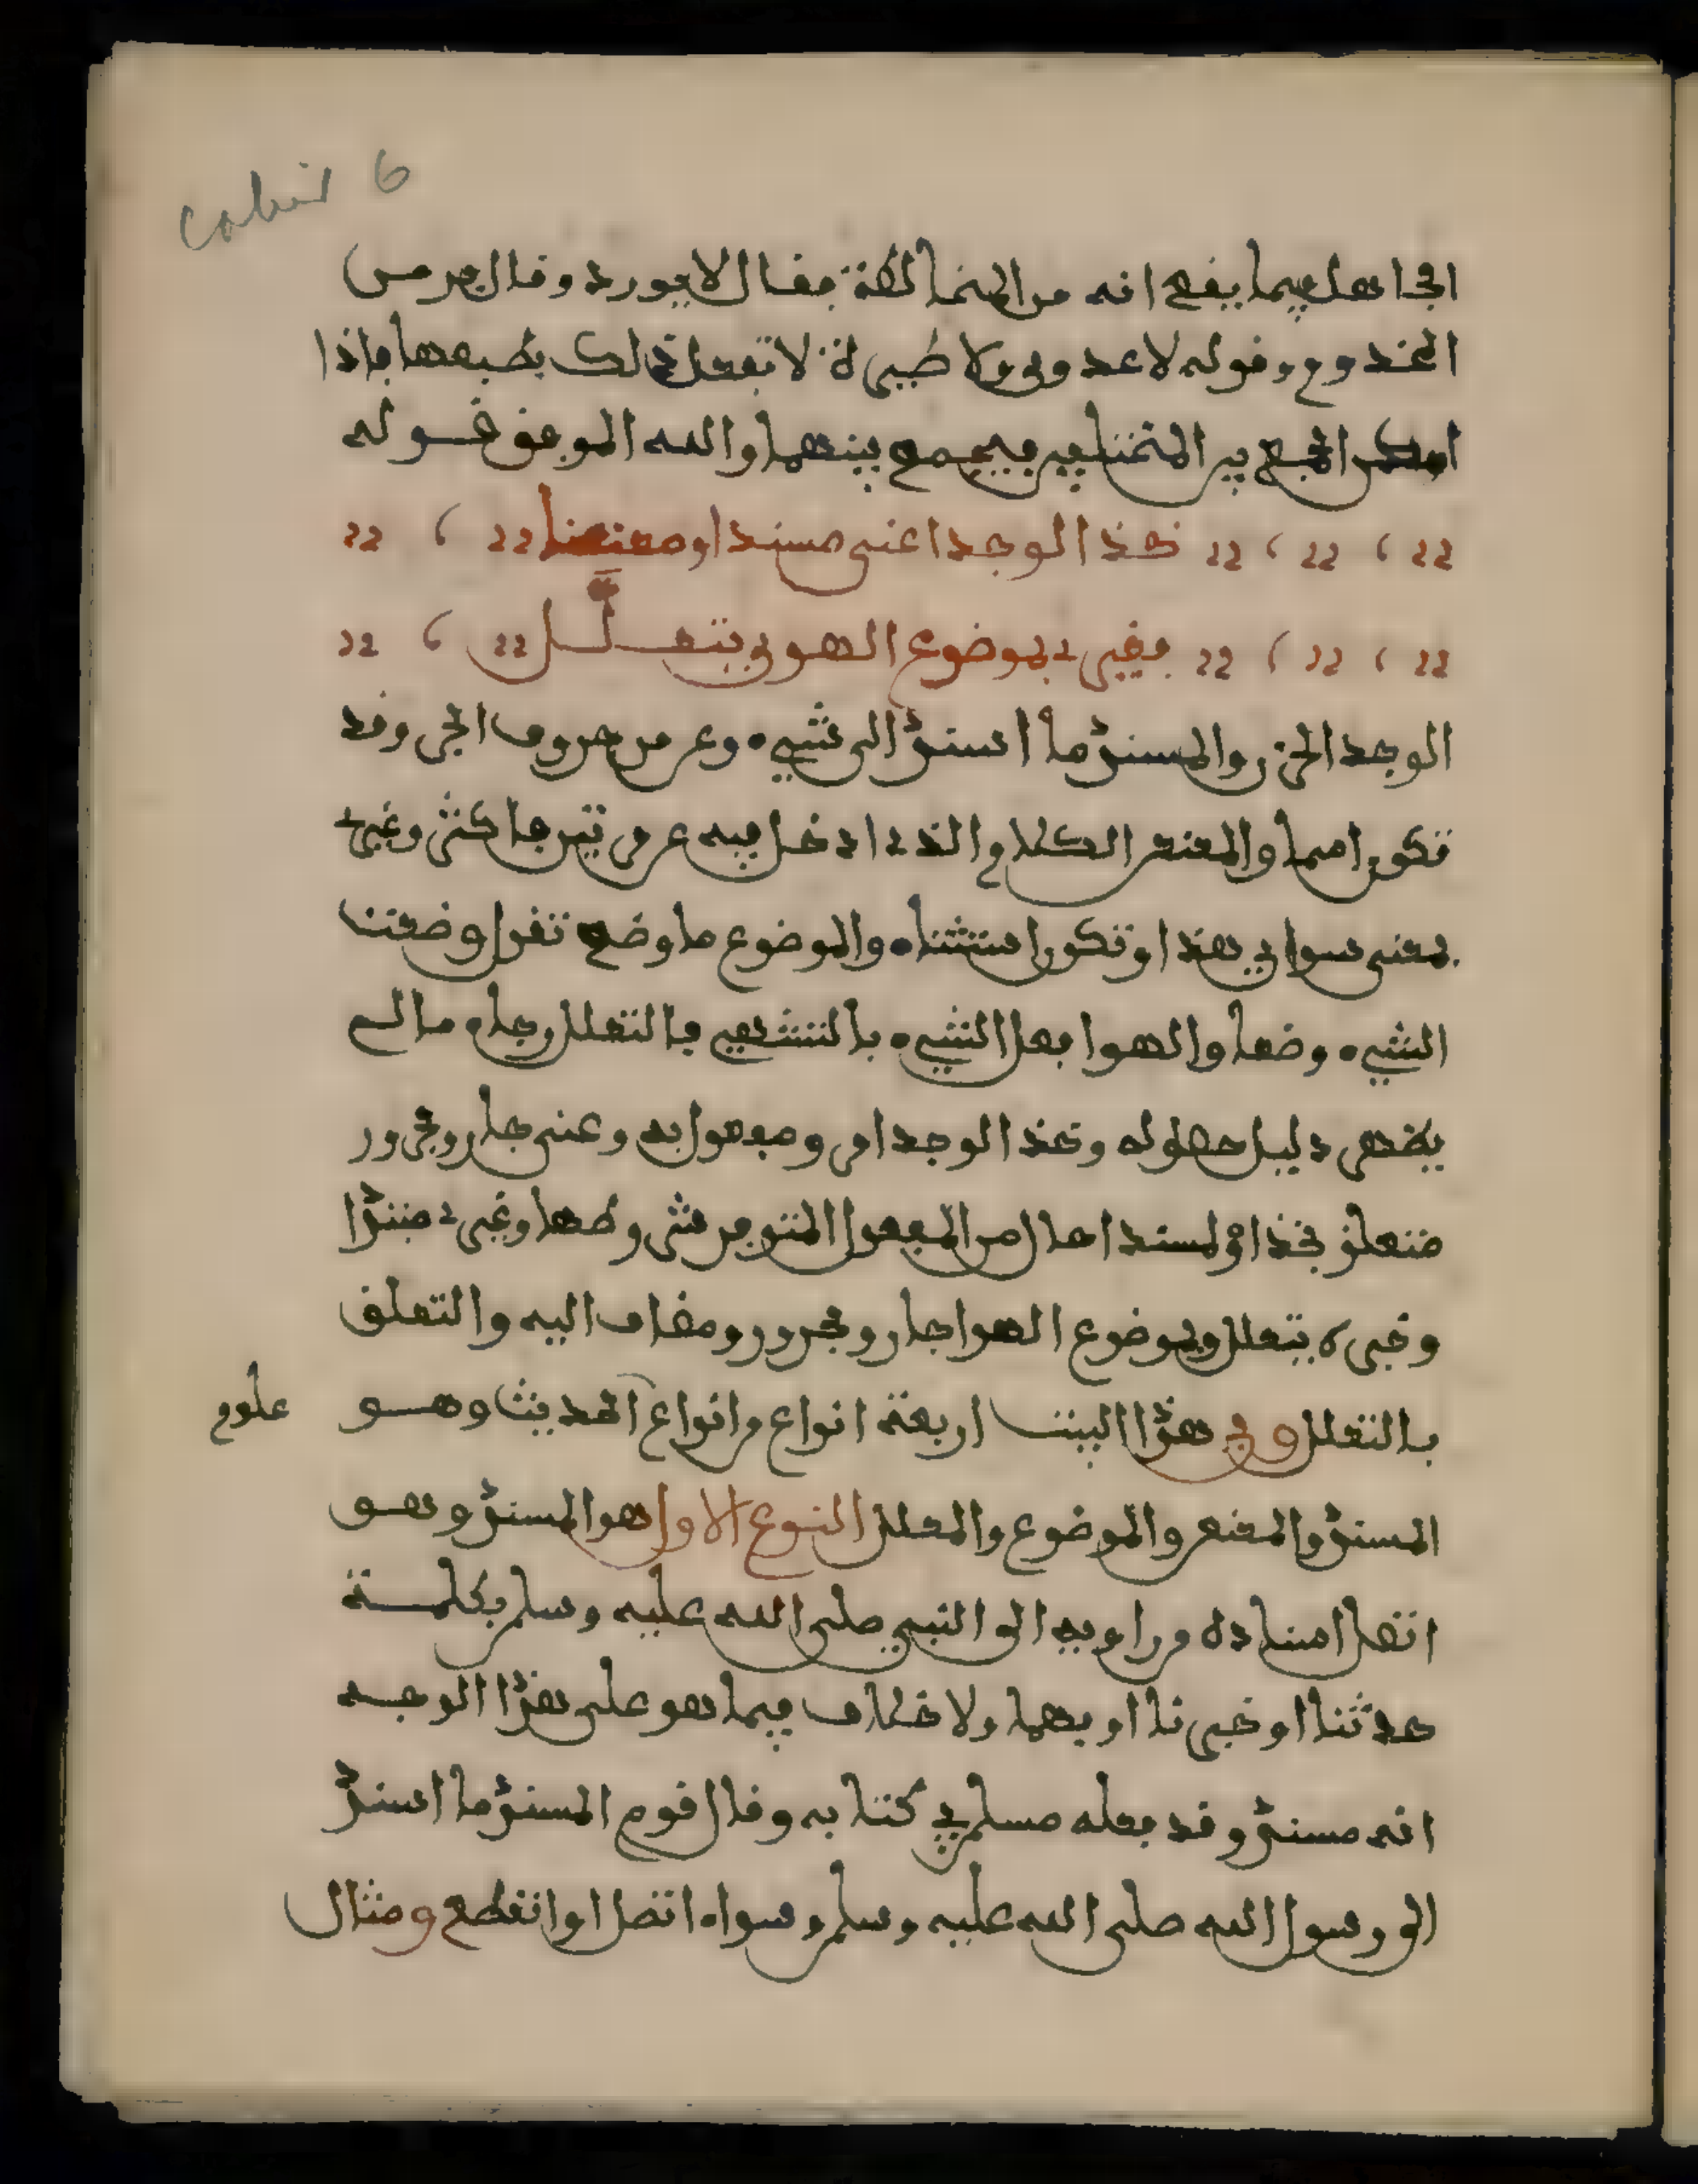 Cahier 6
الجاهل فيما يقع انه من المخالطة فقال لا يورد وقال فر من
المجذوم وقوله لا عدوى ولا طيرة لا تفعل ذلك بطبعها فاذا
امكن الجمع بين المتنافيين فيجمع بينهما والله الموفق قوله
خذ الوجد اعنى مسندا ومعنعنا
فغيرى بموضوع الهوى يتعلل
الوجد الحزن والمسند ما اسند الى شيء وعن من حروف الجر وقد
تكون اسما والمعنعن الكلام الذى ادخل فيه عن فى ترجا كثر وغيرى
بمعنى سواى هذا وتكون استثناء والموضوع ما وضع تقول وضعت
الشيء وضعا والهوا فعل الشيء بالتشهى فالتعلل رجاء ما لم
يظهر دليل حصوله وخذ الوجد امر ومفعول به وعنى جار ومجرور
متعلق بخذ او لمسندا حال من المفعول المتو من وطها وغيرى مبتدا
وخبره يتعلل وبموضوع الهوا جار ومجرور ومضاف اليه والتعلق
بالتعلل وفى هذا البيت اربعة انواع من انواع الحديث وهو
علوم
المسند والمعنعن والموضوع والمعلل النوع الاول هو المسند وهو
اتصل اسناده من راويه الى النبي صلى الله عليه وسلم بكلمة
حدثنا او خبرنا او بهما ولا خلاف فيما هو على هذا الوجه
انه مسند وقد فعله مسلم في كتابه وقال قوم المسند ما اسند
الى رسول الله صلى الله عليه وسلم وسواء اتصل او انقطع ومثال